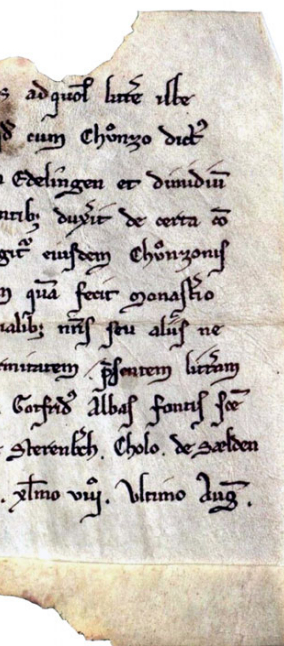 s ad quos litte iste
qd cum Chůnzo dict
n Edelingen et dimidiū
ntib; duxit de certa
git eiusdem Chůnzonis
m quā fecit monastio
ialib; nris seu aliis ne
rmitatem psentem littam
Gotfrid Albas fontis sce
Sterenbch. Cholo. de Sælden
. xlmo viiij. Ultimo Aug.